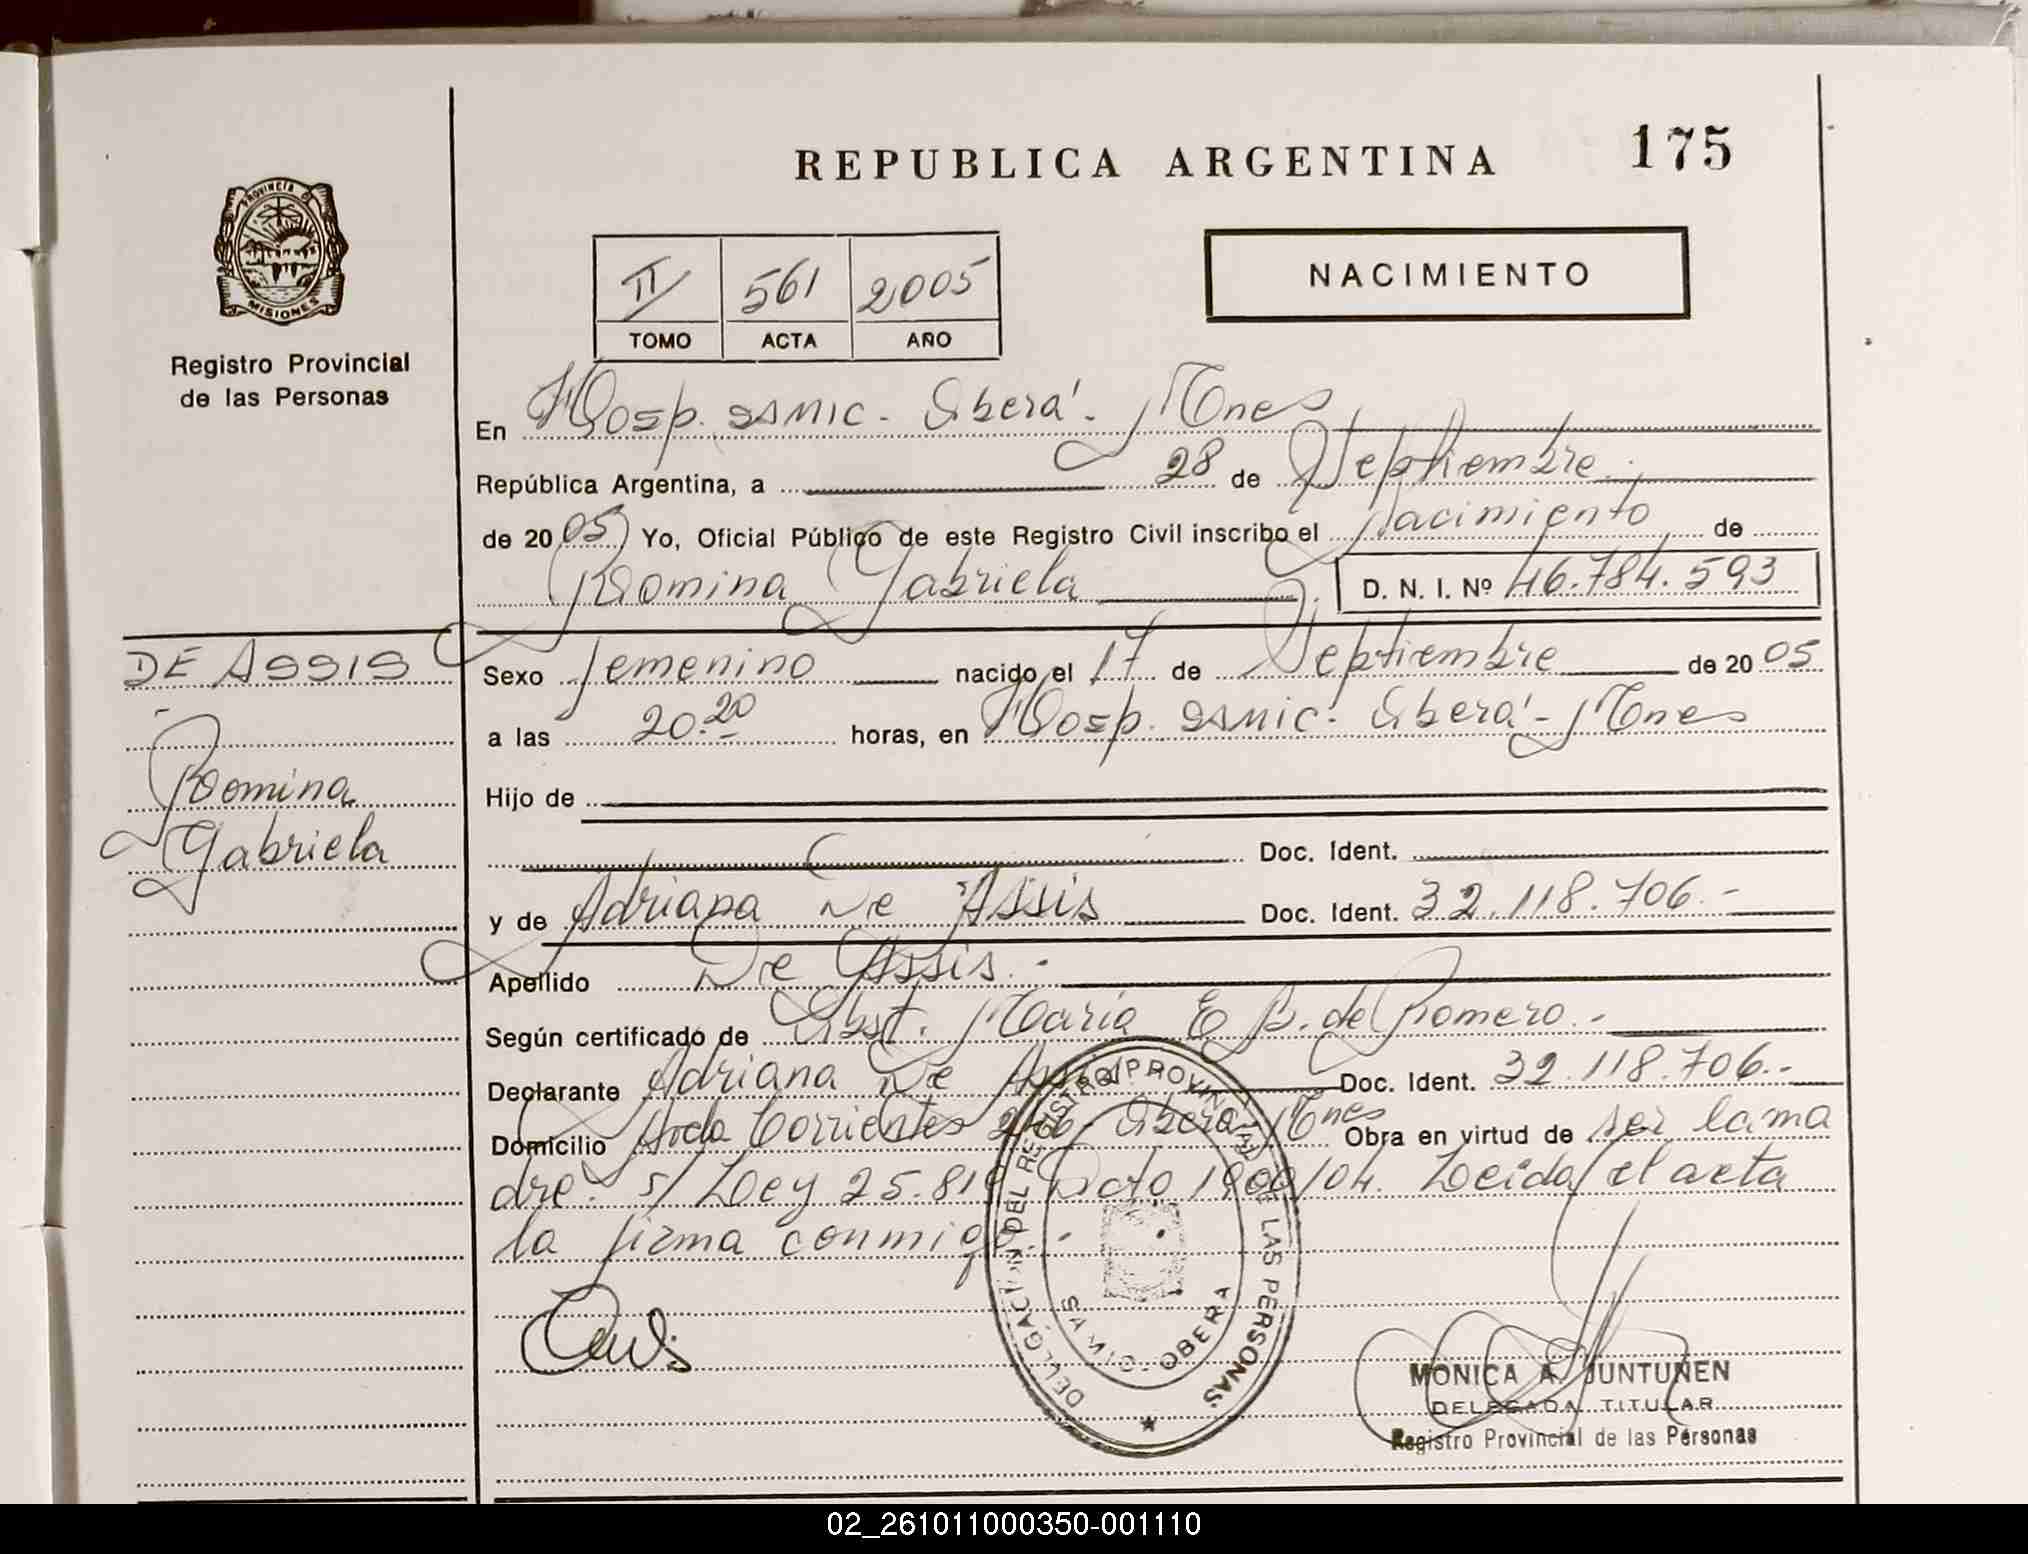 REPUBLICA ARGENTINA 175
PROVINCIA DE
MISIONES
Registro Provincial
de las Personas
II 561 2005
TOMO ACTA AÑO
NACIMIENTO
En Hosp. SAMIC - Oberá - Mnes
República Argentina, a 28 de Septiembre
de 2005 Yo, Oficial Público de este Registro Civil inscribo el Nacimiento de
Romina Gabriela D. N. I. Nº 46.784.593
DE ASSIS
Romina
Gabriela
Sexo femenino nacido el 17 de Septiembre de 2005
a las 20.20 horas, en Hosp. SAMIC - Oberá - Mnes
Hijo de
Doc. Ident.
y de Adriana De Assis Doc. Ident. 32.118.706.-
Apellido De Assis.-
Según certificado de Obst. María E B. de Romero.-
Declarante Adriana De Assis Doc. Ident. 32.118.706.-
Domicilio Avda Corrientes Oberá Mnes Obra en virtud de ser la ma
dre. s/ Ley 25.819 Dcto 1900/04. Leida el acta
la firma conmigo.-
DELEGACION DEL REGISTRO PROVINCIAL DE LAS PERSONAS
SAMIC - OBERA
MONICA A. JUNTUNEN
DELEGADA TITULAR
Registro Provincial de las Personas
02_261011000350-001110